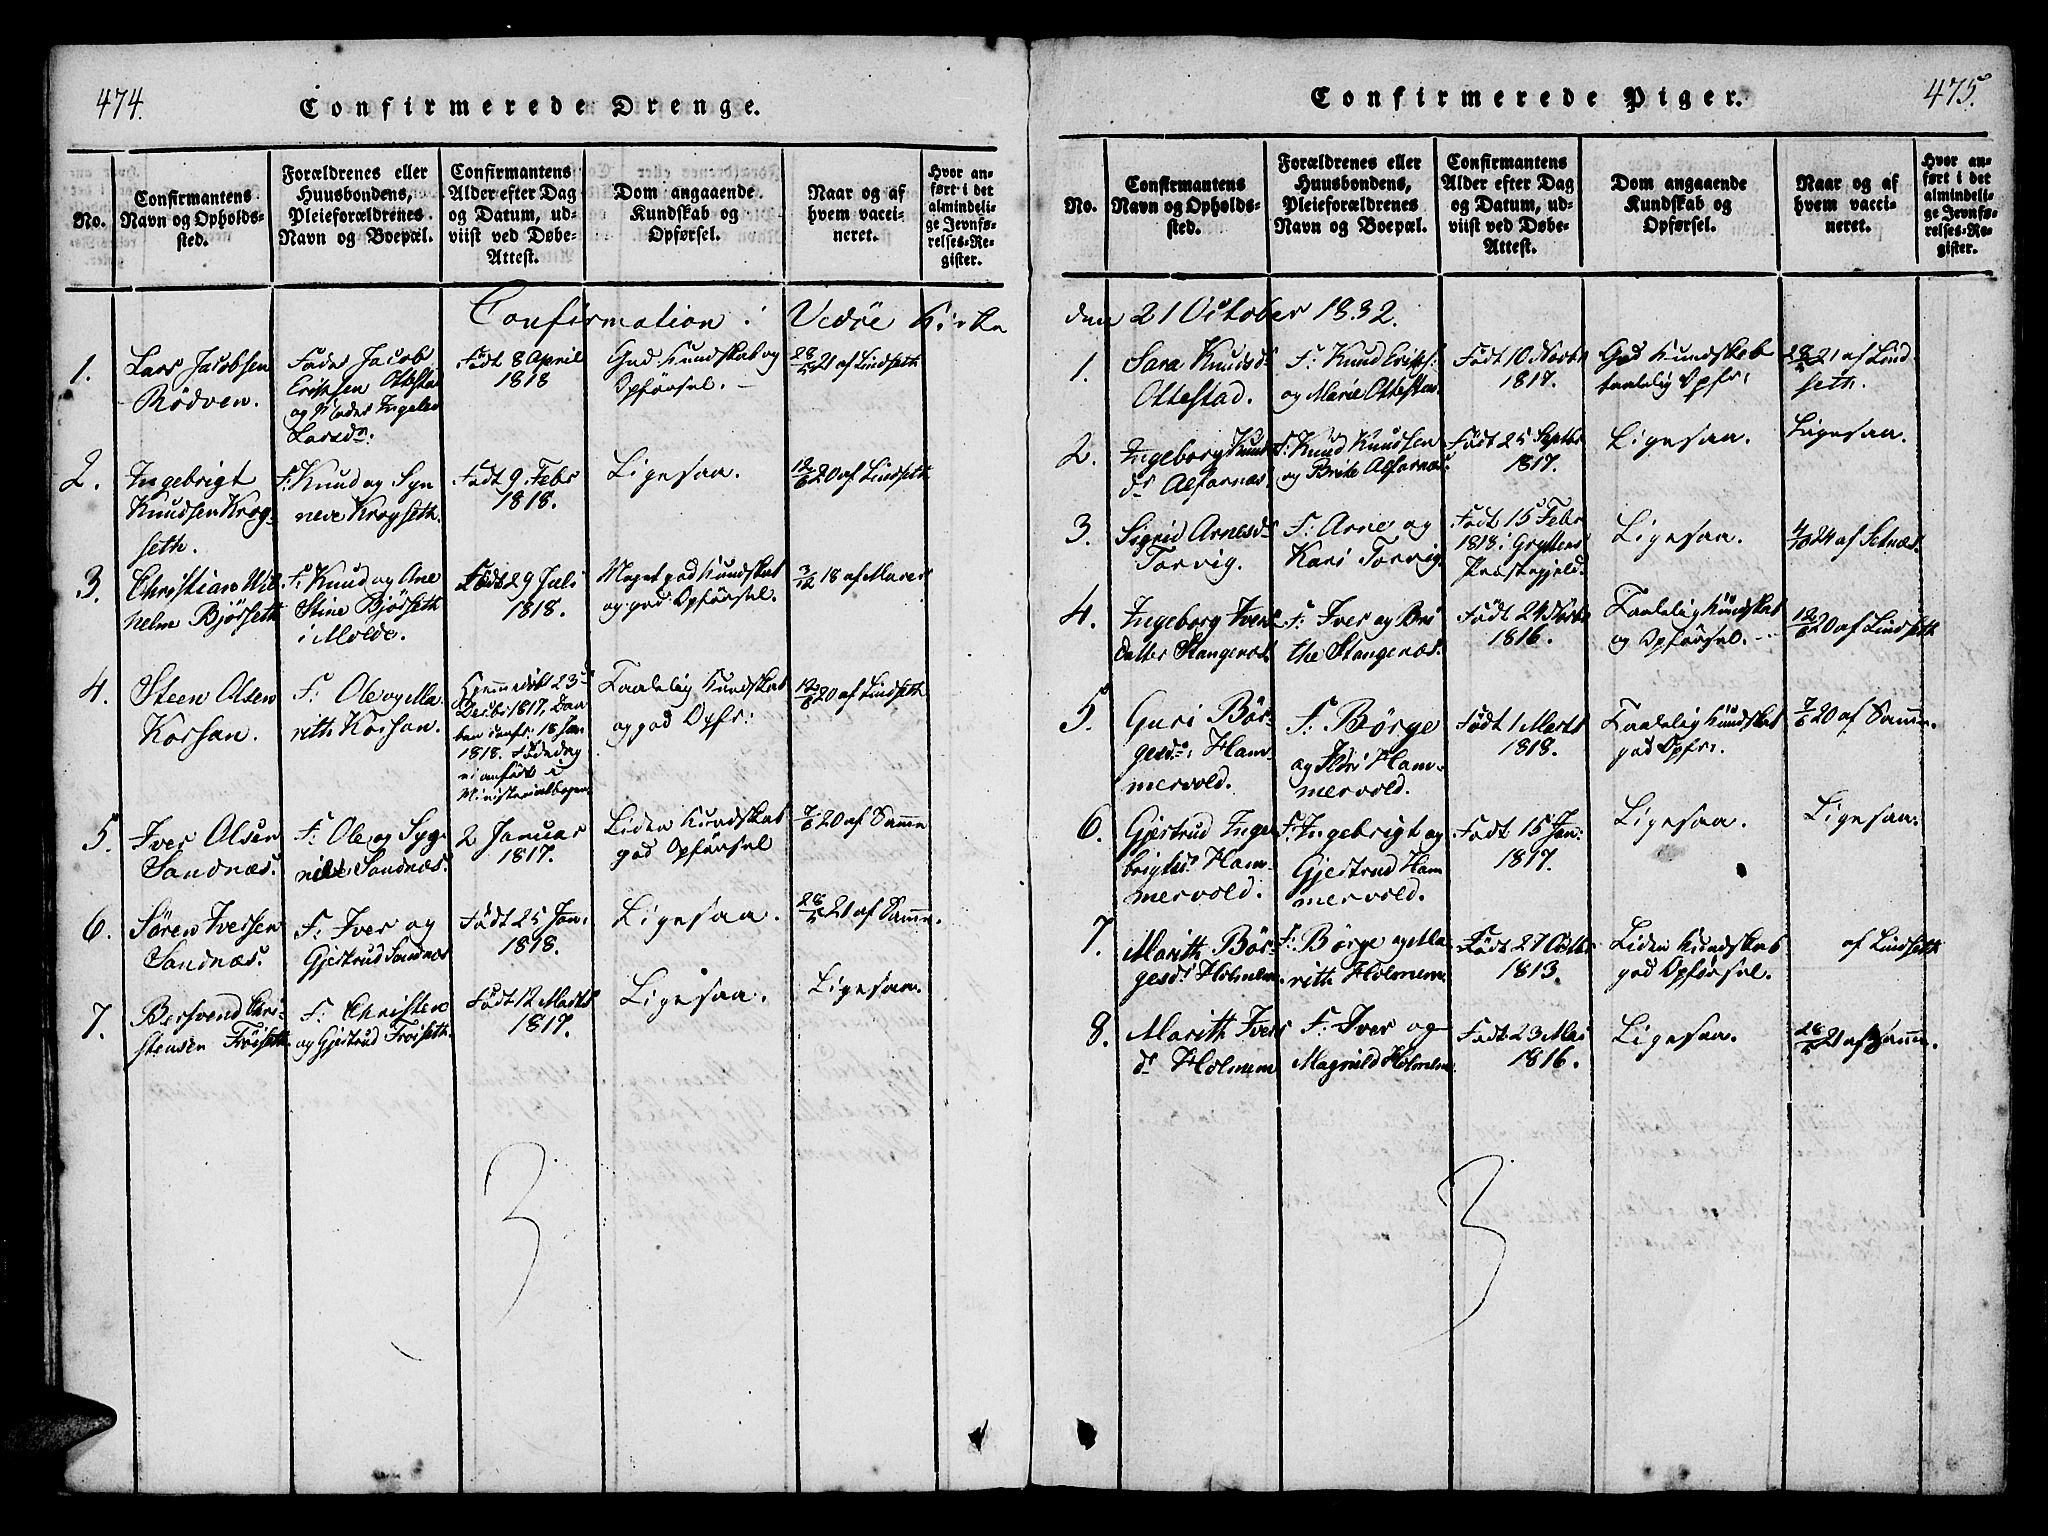 474.
Confirmerede Drenge.
No.
Confirmantens
Navn og Opholds-
sted.
Forældrenes eller
Huusbondens,
Pleieforældrenes
Navn og Boepæl.
Confirmantens
Alder efter Dag
og Datum, ud-
viist ved Døbe-
Attest.
Dom angaaende
Kundskab og
Opførsel.
Naar og af
hvem vacci-
neret.
Hvor an-
ført i det
almindeli-
ge Jevnfø-
relses-Re-
gister.
Confirmation i Vedøe Kirke
1.
Lars Jacobsen
Rödven.
Fader Jacob
Ericksen Ottestad
og Moder Ingelev
Larsdr:
Födt 8 April
1818
God Kundskab og
Opförsel. –
28/5 21 af Lindseth
2.
Ingebrigt
Knudsen Krog-
seth.
F: Knud og Syn
neve Krogseth.
Födt 9 Febr
1818.
Ligesaa.
12/6 20 af Lindseth
3.
Christian Wil
helm Björseth
F: Knud og Ane
Stine Björseth
i Molde.
Födt 29 Juli
1818.
Meget god Kundskab
og god Opförsel.
3/12 18 af
4.
Steen Olsen
Korsan.
F: Ole og Ma
rith Korsan.
Hjemmedöbt 23d
Decbr 1817, Daa
ben confr. 18 Jan
1818. Födedag
ei anfört i
Ministerialbogen
Taalelig Kundskab
og god Opfr:
12/6 20 af Lindseth
5.
Iver Olsen
Sandnæs.
F: Ole og Syg
Sandnæs.
2 Januar
1817.
Liden Kundskab
god Opförsel
7/6 20 af Samme
6.
Sören Iversen
Sandnæs.
F: Iver og
Gjertrud Sandnæs
Födt 25 Jan:
1818.
Ligesaa.
28/5 21 af Samme.
7.
Bersvend Chri-
stensen Fröiseth.
F: Christen
og Gjertrud Fröiseth.
Födt 12 Marts
1817.
Ligesaa.
Ligesaa.
3
475.
Confirmerede Piger.
No.
Confirmantens
Navn og Opholds-
sted.
Forældrenes eller
Huusbondens,
Pleieforældrenes
Navn og Boepæl.
Confirmantens
Alder efter Dag
og Datum, ud-
viist ved Døbe-
Attest.
Dom angaaende
Kundskab og
Opførsel.
Naar og af
hvem vacci-
neret.
Hvor an-
ført i det
almindeli-
ge Jevnfø-
relses-Re-
gister.
den 21 October 1832.
1.
Sara Knudsdr
Ottestad.
F: Knud Ericks:
og Marie Ottestad.
Födt 10 Novbr
1817.
God Kundskab
taalelig Opfr:
28/5 21 af Lind
seth.
2.
Ingeborg Knuds
dr Alfarnæs.
F: Knud Knudsen
og Brite Alfarnæs.
Födt 25 Septbr
1817.
Ligesaa.
Ligesaa.
3.
Sigrid Arnesdr
Torvig.
F: Arne og
Kari Torvig
Födt 15 Febr
1818 i Gryttens
Præstegjeld.
Ligesaa.
4/10 24 af Setnæs.
4.
Ingeborg Ivers
datter Stangenæs.
F: Iver og Bri
the Stangenæs.
Födt 24
1816.
Taalelig Kundskab
og Opförsel. –
12/6 20 af Lindseth
5.
Guri Bör-
gesdr: Ham-
mervold.
F: Börge
og Ham-
mervold.
Födt 1 Marts
1818.
Taalelig Kundskab
god Opfr:
7/6 20 af Samme.
6.
Gjertrud Inge
brigtsdr Ham-
mervold.
F: Ingebrigt og
Gjertrud Ham
mervold.
Födt 15 Jan:
1817.
Ligesaa.
Ligesaa.
7.
Marith Bör-
gesdr Holmem.
F: Börge og Ma
rith Holmem.
Födt 27 Octbr
1813.
Liden Kundskab
god Opförsel.
af Lindseth
8.
Marith Ivers
dr Holmem
F: Iver og
Magnild Holmem
Födt 23 Mai
1816.
Ligesaa.
28/5 21 af Samme.
3